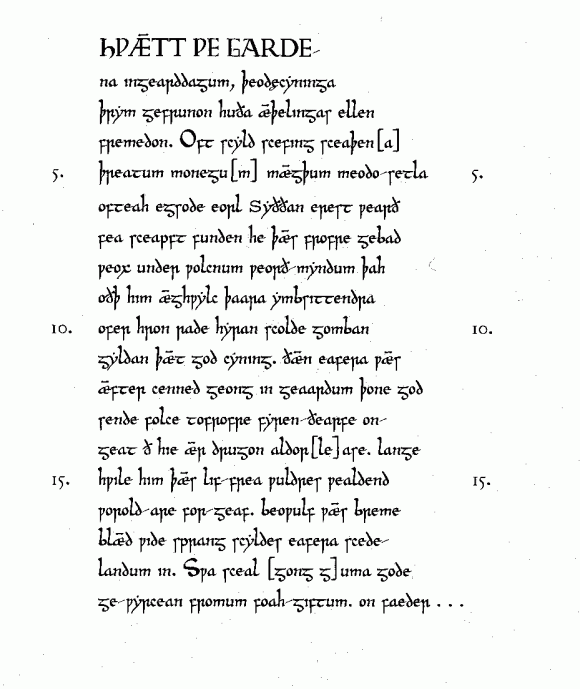 HǷǢTT ǷE GARDE-
na ingearddagum, þeodcyninga
þrym gefrunon huða ǣþelingas ellen
fremedon. Oft scyld scefing sceaþen[a]
5. þreatum monegu[m] mǣgþum meodo-setla 5.
ofteah egsode eorl Syððan erest ƿearð
fea sceaƿft funden he þǣs frofre gebad
ƿeox under ƿolcnum ƿeorð-myndum þah
oðþ him ǣghƿylc þaara ymbsittendra
10. ofer hron rade hyran scolde gomban 10.
gyldan þǣt god cyning. ðǣn eafera ƿǣs
ǣfter cenned geong in geaardum þone god
sende folce tofrofre fyren-ðearfe on-
geat ð hie ǣr drugon aldor[le]ase. lange
15. hƿile him þǣs lif-frea ƿuldres ƿealdend 15.
ƿorold-are for-geaf. beoƿulf ƿǣs breme
blǣd ƿide sprang scyldes eafera scede-
landum in. Sƿa sceal [gong g]uma gode
ge-ƿyrcean fromum foah-giftum. on faeder . . .